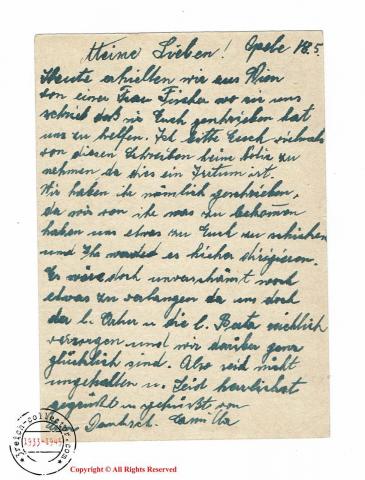 Meine Lieben! Opole 18.5.
Heute erhielten wir aus Wien
von einer Frau Fischer wo sie uns
schrieb daß sie Euch geschrieben hat
uns zu helfen. Ich bitte Euch vielmals
von diesen Schreiben keine Notiz zu
nehmen da dies ein Irrtum ist.
Wir haben ihr nämlich geschrieben,
da wir von ihr was zu bekommen
haben uns etwas zu Euch zu schicken
und Ihr werdet es hieher dirigieren.
Es wäre doch unverschämt noch
etwas zu verlangen da uns doch
der l. Oskar u die l. Beata reichlich
versorgen und wir darüber ganz
glücklich sind. Also seid nicht
ungehalten u. seid herzlichst
gegrüßt u geküsst von
Dankb. Camilla
reich-collector.com
1933-1945
Copyright © All Rights Reserved